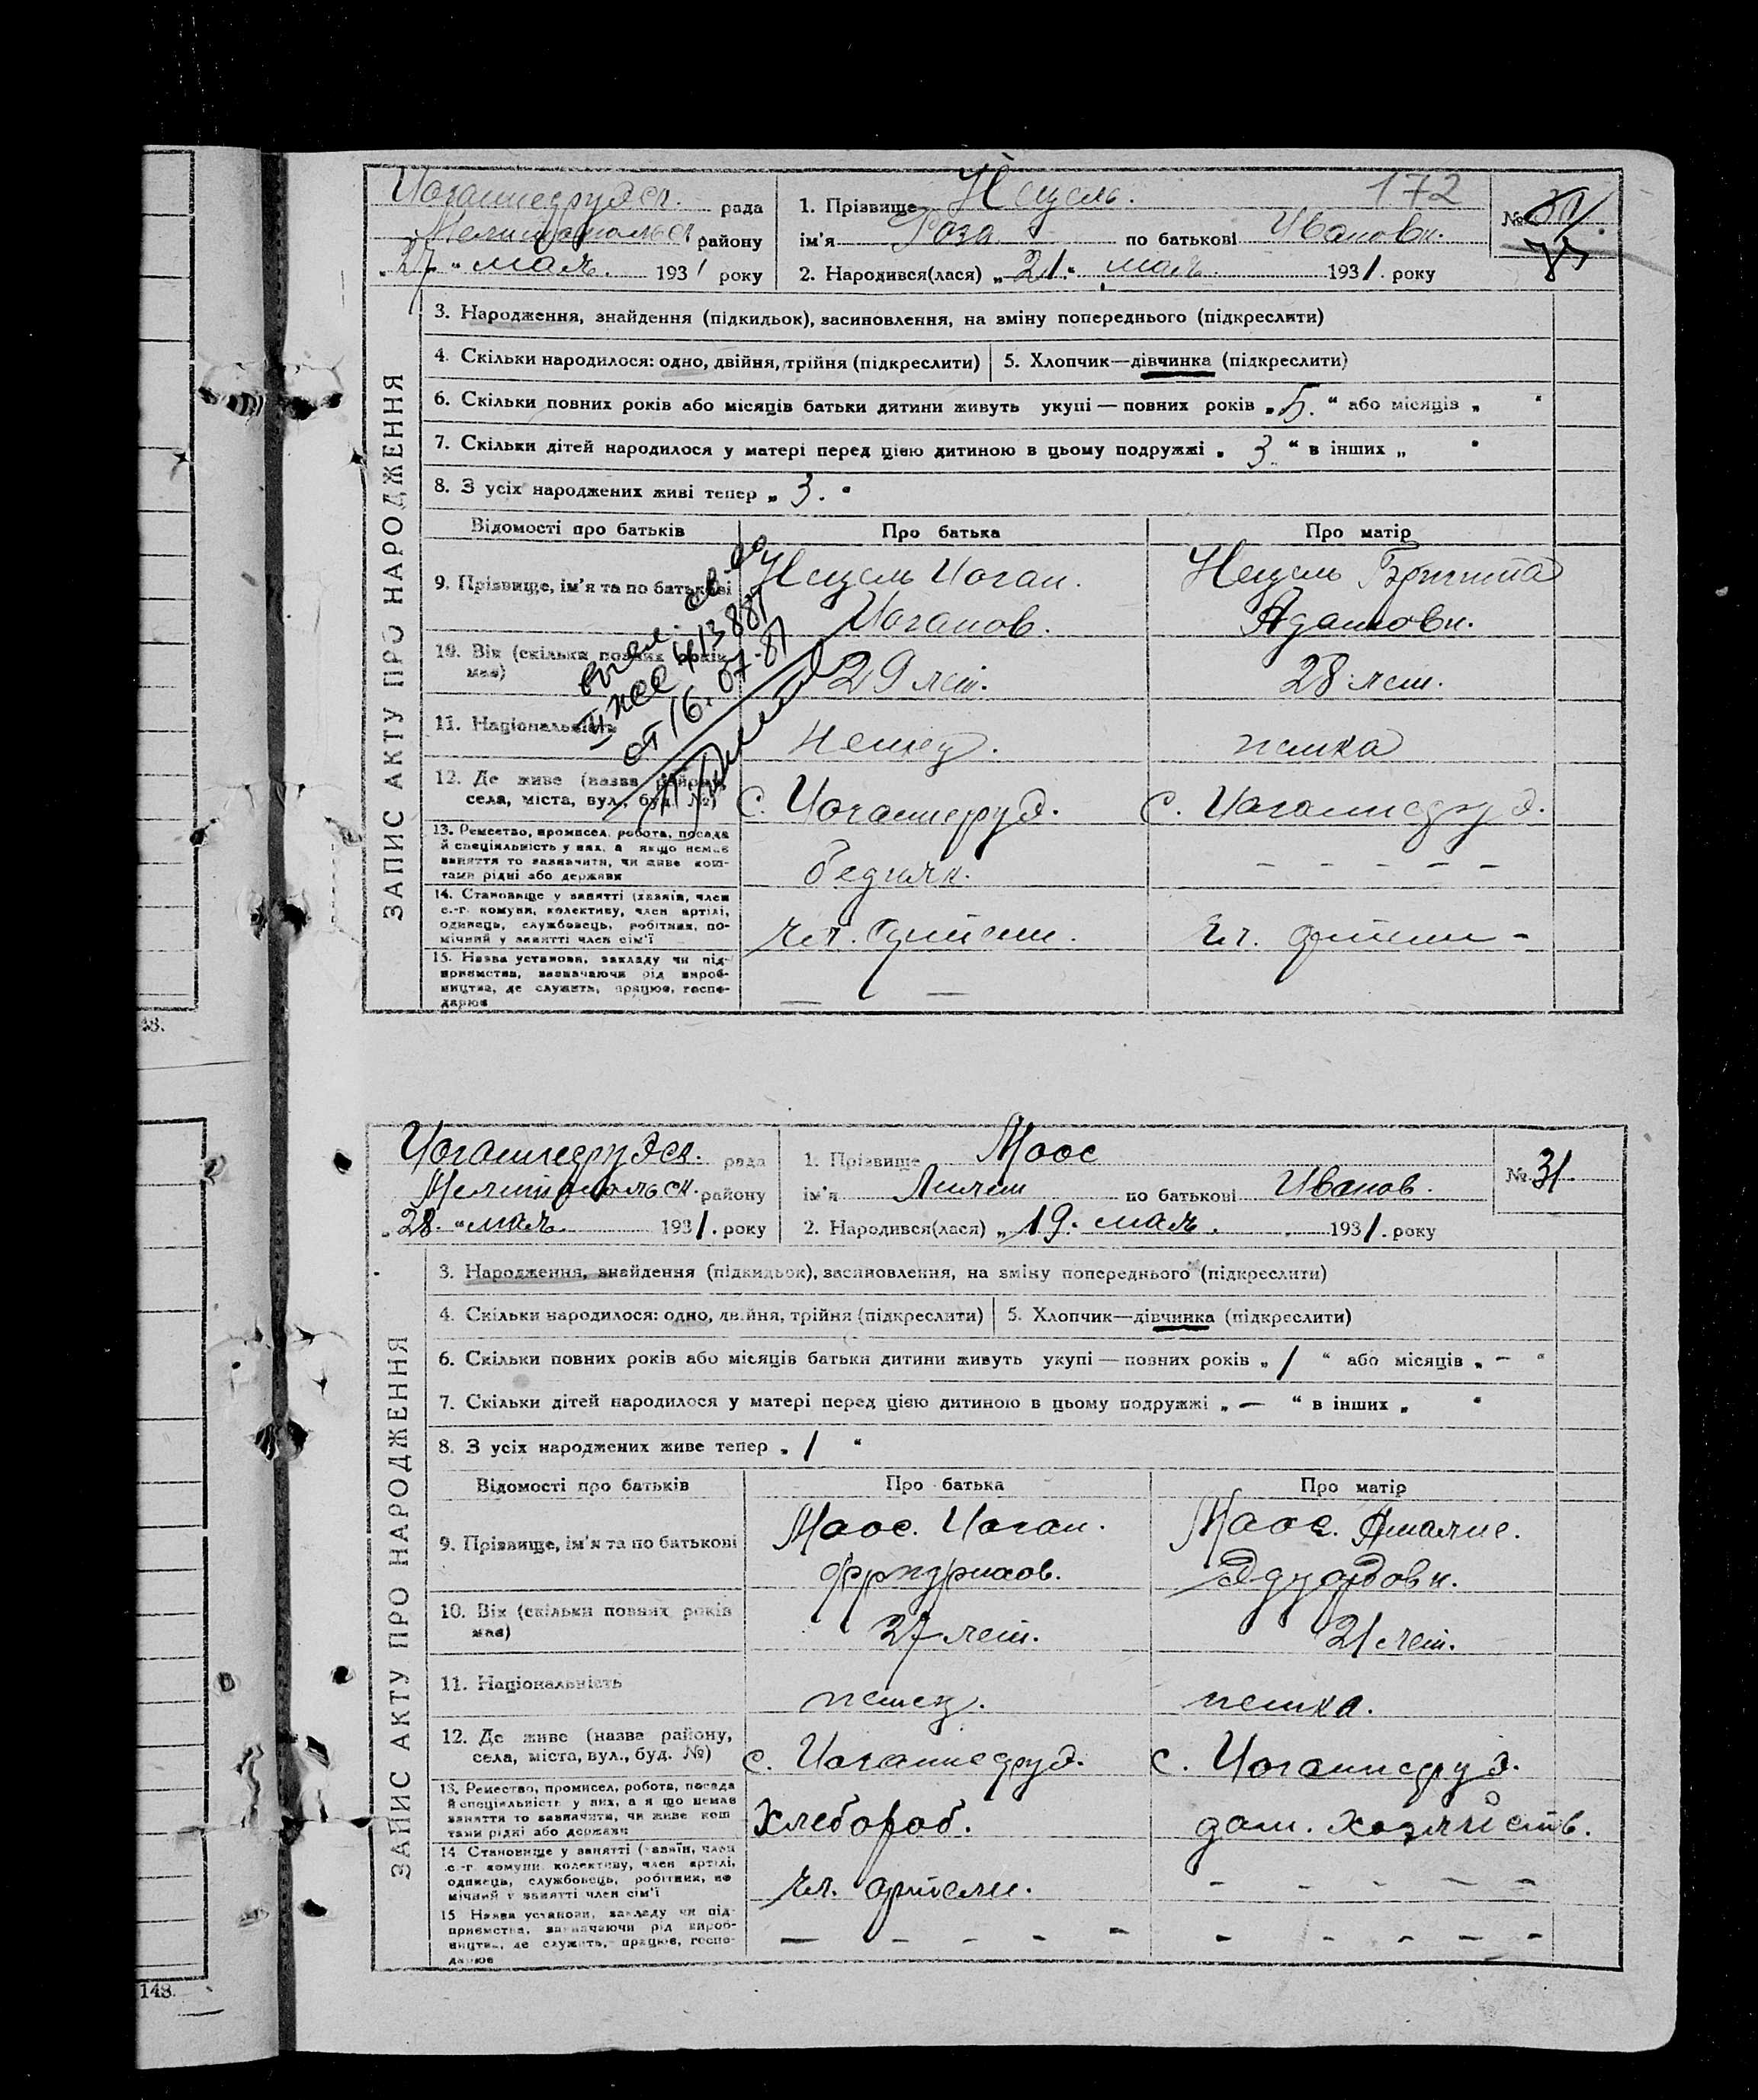 172
Иоганнесрудск. рада
Мелитопольск. району
„27" мая. 1931 року
1. Прізвище Нецель.
ім'я Роза по батькові Ивановн.
2. Народився(лася) „21." мая. 1931. року
№
ЗАПИС АКТУ ПРО НАРОДЖЕННЯ
3. Народження, знайдення (підкидьок), засиновлення, на зміну попереднього (підкреслити)
4. Скільки народилося: одно, двійня, трійня (підкреслити) 5. Хлопчик—дівчинка (підкреслити)
6. Скільки повних років або місяців батьки дитини живуть укупі — повних років „5." або місяців „ "
7. Скільки дітей народилося у матері перед цією дитиною в цьому подружжі „3." в інших „ "
8. З усіх народжених живі тепер „3."
Відомості про батьків Про батька Про матір
9. Прізвище, ім'я та по батькові Нецель Иоган. Нецель Бригита
Иоганов. Адамовн.
10. Вік (скільки повних років має) 29 лет. 28 лет.
11. Національність немец. немка
12. Де живе (назва району,
села, міста, вул., буд. №) с. Иоганнесруд. с. Иоганнесруд.
13. Ремество, промисел, робота, посада
й спеціяльність у них, а якщо немає
заняття то зазначити, чи живе кош-
тами рідні або держави бедняк. - - - - -
14. Становище у занятті (хазяїн, член
с.-г. комуни, колективу, член артілі,
одинець, службовець, робітник, по-
мічний у занятті член сім'ї чл. артели. чл. артели -
15. Назва установи, закладу чи під-
приємства, зазначаючи рід вироб-
ництва, де служить, працює, госпо-
дарює — —
от 16.07.81
48.
Иоганнесрудск. рада
Мелитопольск. району
„28." мая 1931. року
1. Прізвище Маос
ім'я по батькові Иванов.
2. Народився(лася) „19. мая. 1931. року
№ 31.
ЗАПИС АКТУ ПРО НАРОДЖЕННЯ
3. Народження, знайдення (підкидьок), засиновлення, на зміну попереднього (підкреслити)
4. Скільки народилося: одно, двійня, трійня (підкреслити) 5. Хлопчик—дівчинка (підкреслити)
6. Скільки повних років або місяців батьки дитини живуть укупі — повних років „1" або місяців „—"
7. Скільки дітей народилося у матері перед цією дитиною в цьому подружжі „—" в інших „ "
8. З усіх народжених живе тепер „1"
Відомості про батьків Про батька Про матір
9. Прізвище, ім'я та по батькові Маос. Иоган. Маос. Амалие.
Фридрихов. Эдуардовн.
10. Вік (скільки повних років має) 27 лет. 21 лет.
11. Національність немец. немка.
12. Де живе (назва району,
села, міста, вул., буд. №) с. Иоганнесруд. с. Иоганнесруд.
13. Ремество, промисел, робота, посада
й спеціяльність у них, а якщо немає
заняття то зазначити, чи живе кош
тами рідні або держави Хлебороб. дом. хозяйств.
14 Становище у занятті (хазяїн, член
с.-г. комуни, колективу, член артілі,
одинець, службовець, робітник, по
мічний у занятті член сім'ї чл. артели. - - - - -
15 Назва установи, закладу чи під-
приємства, зазначаючи рід вироб-
ництва, де служить, працює, госпо-
дарює — - - - - - - - - -
148.